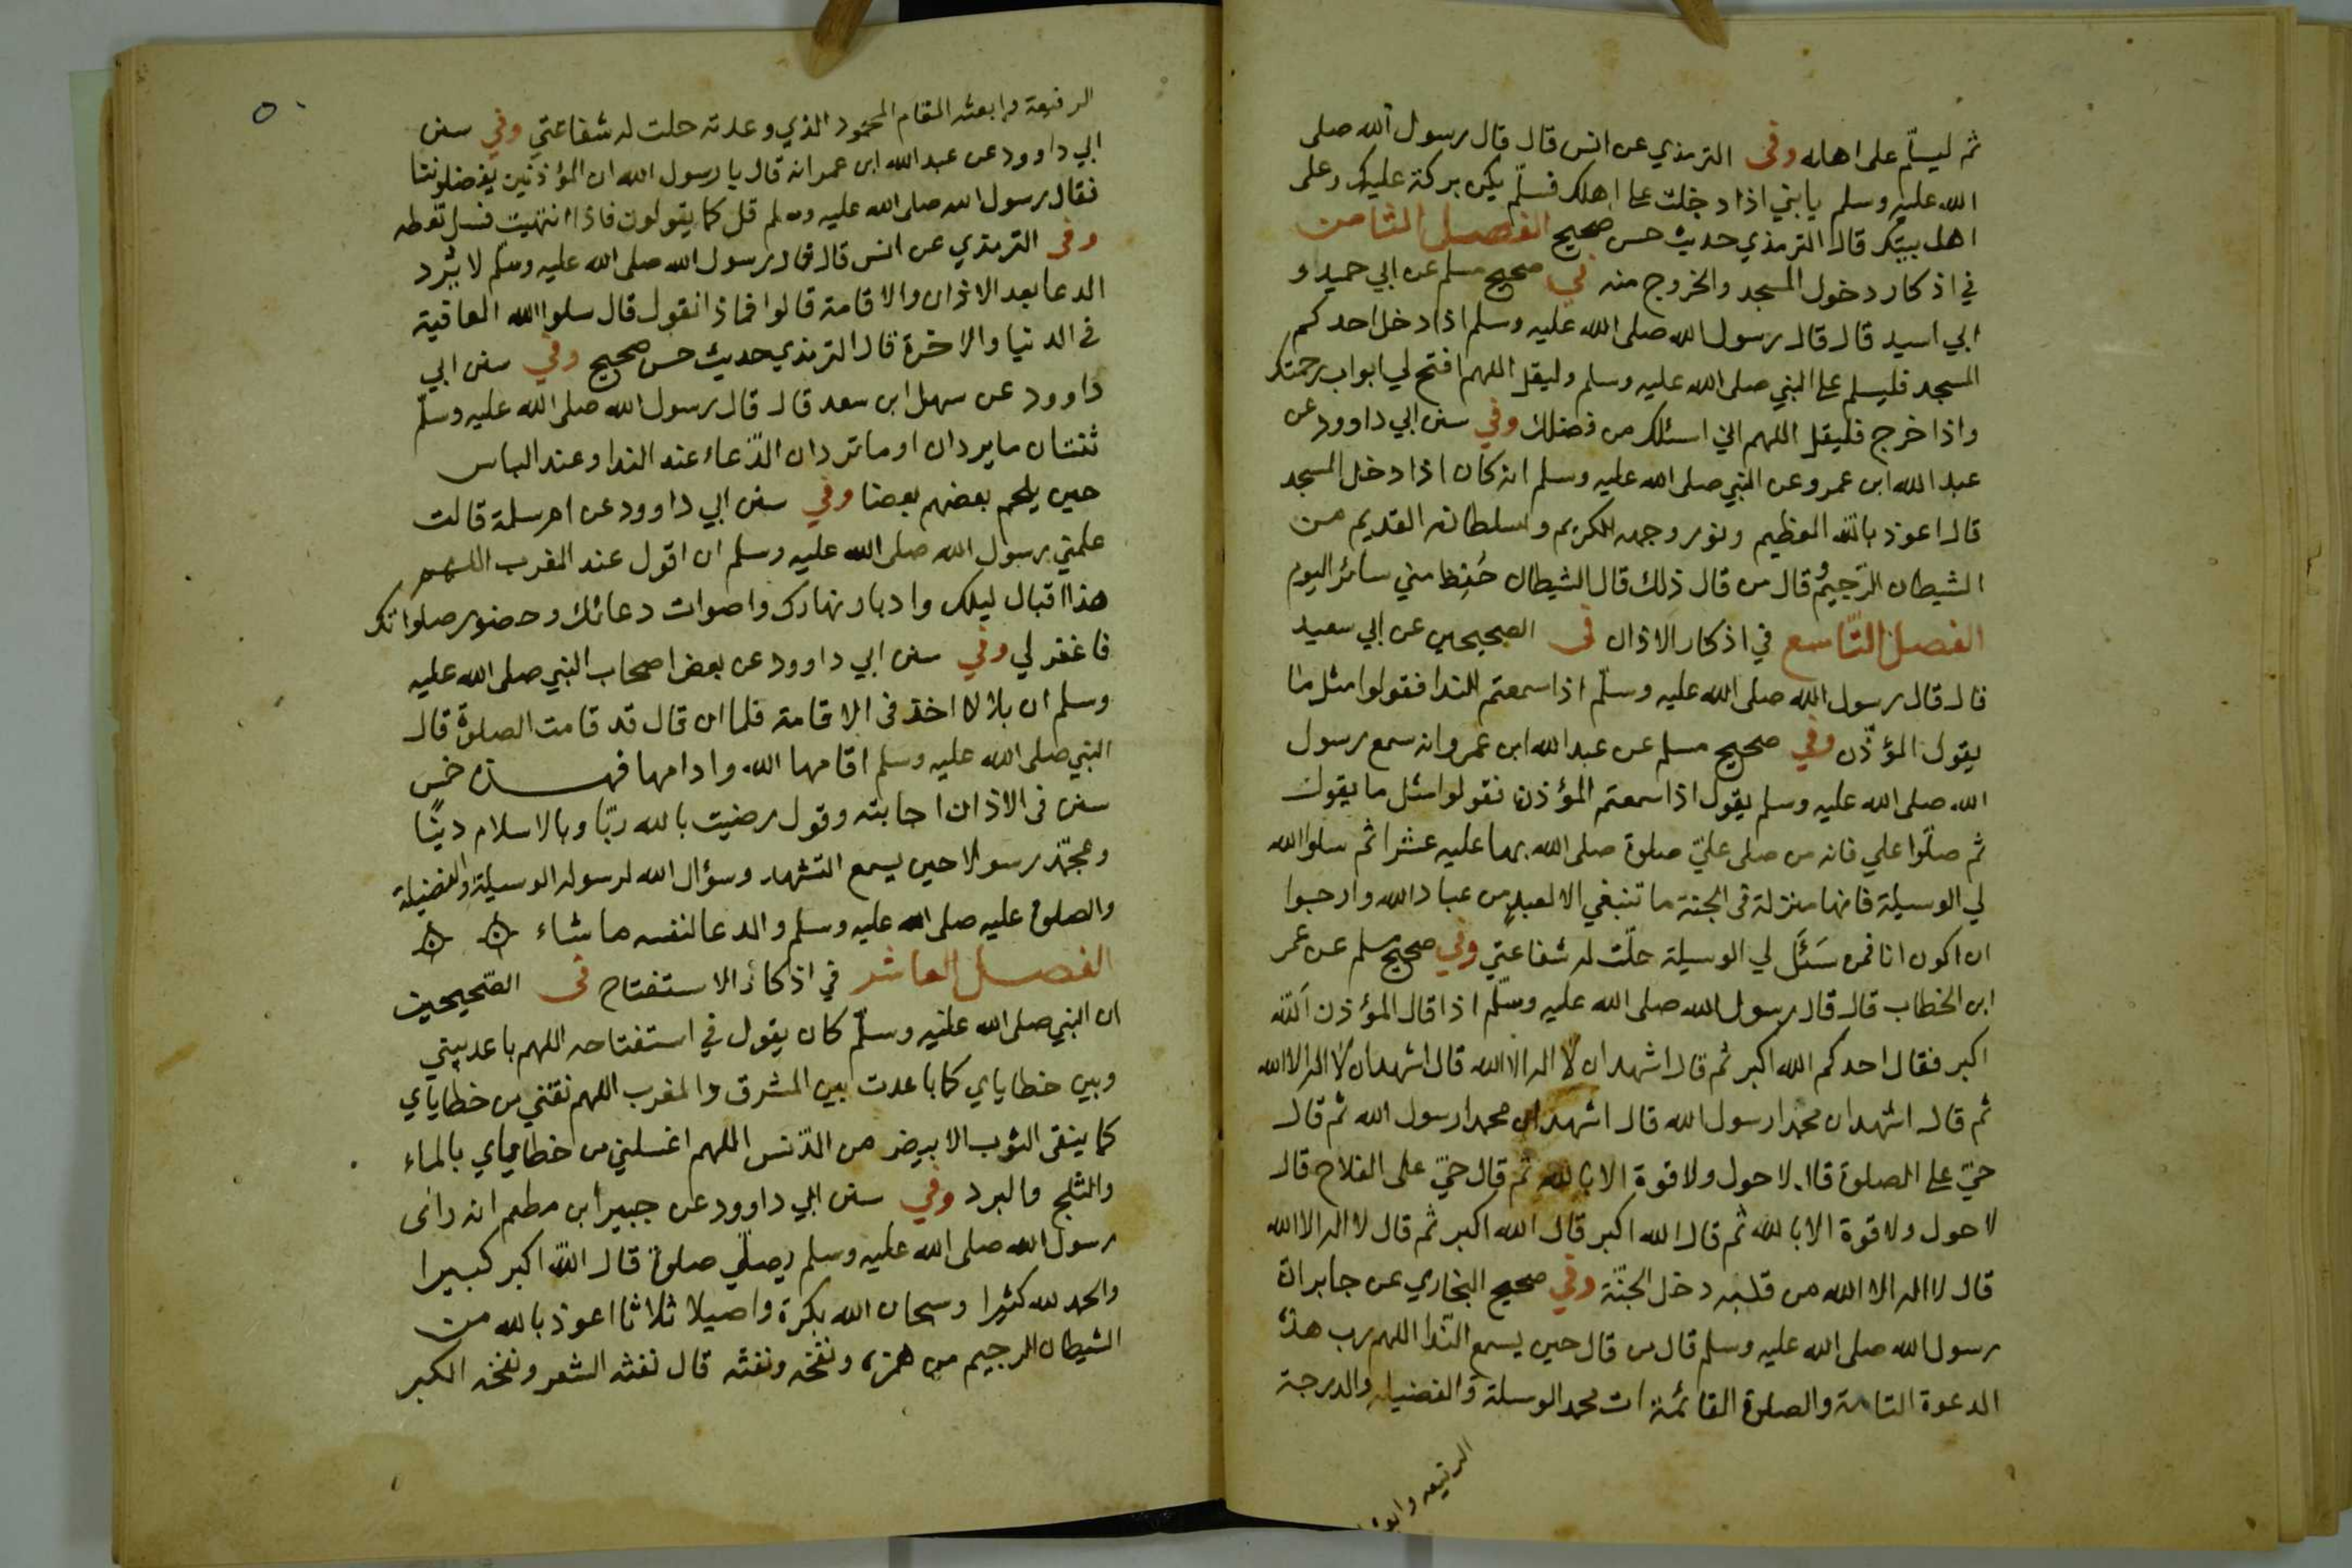 ثم ليسلّم على اهله وفى الترمذي عن انس قال قال رسول الله صلى
الله عليه وسلم يا بني اذا دخلت على اهلك فسلّم يكن بركة عليك وعلى
اهل بيتك قال الترمذي حديث حسن صحيح الفصل الثامن
في اذكار دخول المسجد والخروج منه في صحيح مسلم عن ابي حميد او
ابي اسيد قال قال رسول الله صلى الله عليه وسلم اذا دخل احدكم
المسجد فليسلم على النبي صلى الله عليه وسلم وليقل اللهم افتح لي ابواب رحمتك
واذا خرج فليقل اللهم اني اسئلك من فضلك وفي سنن ابي داوود عن
عبد الله ابن عمرو عن النبي صلى الله عليه وسلم انه كان اذا دخل المسجد
قال اعوذ بالله العظيم ونور وجهه الكريم وسلطانه القديم من
الشيطان الرّجيم وقال من قال ذلك قال الشيطان حُفِظ مني سائر اليوم
الفصل التّاسع في اذكار الاذان فى الصحيحين عن ابي سعيد
قال قال رسول الله صلى الله عليه وسلّم اذا سمعتم الندا فقولوا مثل ما
يقول المؤذّن وفي صحيح مسلم عن عبد الله ابن عمرو انه سمع رسول
الله صلى الله عليه وسلم يقول اذا سمعتم المؤذن فقولوا مثل ما يقول
ثم صلّوا علي فانه من صلى عليّ صلوة صلى الله بها عليه عشرا ثم سلوا الله
لي الوسيلة فانها منزلة فى الجنة ما تنبغي الا لعبد من عباد الله وارجوا
ان اكون انا فمن سَئَل لي الوسيلة حلّت له شفاعتي وفي صحيح مسلم عن عمر
ابن الخطاب قال قال رسول الله صلى الله عليه وسلّم اذا قال المؤذن اَللّه
اكبر فقال احدكم الله اكبر ثم قال اشهد ان لا اله الا الله قال اشهد ان لا اله الا الله
ثم قال اشهد ان محمدا رسول الله قال اشهد ان محمدا رسول الله ثم قال
حيّ على الصلوة قال لا حول ولا قوة الا بالله ثم قال حيّ على الفلاح قال
لا حول ولا قوة الا بالله ثم قال الله اكبر قال الله اكبر ثم قال لا اله الا الله
قال لا اله الا الله من قلبه دخل الجنّة وفي صحيح البخاري عن جابر ان
رسول الله صلى الله عليه وسلم قال من قال حين يسمع النّدا اللهم رب هذه
الدعوة التامة والصلوة القائمة ات محمد الوسلة والفضيله والدرجة
الرفيعه وابعثه
٥٠
الرفيعة وابعثه المقام المحمود الذي وعدته حلت له شفاعتي وفي سنن
ابي داوود عن عبد الله ابن عمر انه قال يا رسول الله ان المؤذنين يفضلوننا
فقال رسول الله صلى الله عليه وسلم قل كما يقولون فاذا انتهيت فسل تعطه
وفى الترمذي عن انس قال قال رسول الله صلى الله عليه وسلّم لا يُرد
الدعا بعد الاذان والاقامة قالوا فماذا نقول قال سلوا الله العافية
فى الدنيا والاخرة قال الترمذي حديث حسن صحيح وفي سنن ابي
داوود عن سهل ابن سعد قال قال رسول الله صلى الله عليه وسلّم
ثنتان ما يردان او ما تردان الدّعاء عند الندا وعند الباس
حين يلحم بعضهم بعضا وفي سنن ابي داوود عن ام سلمة قالت
علمني رسول الله صلى الله عليه وسلم ان اقول عند المغرب اللهم
هذا اقبال ليلك وادبار نهارك واصوات دعائك وحضور صلواتك
فاغفر لي وفي سنن ابي داوود عن بعض اصحاب النبي صلى الله عليه
وسلم ان بلالا اخذ فى الاقامة فلما ان قال قد قامت الصلوة قال
النبي صلى الله عليه وسلم اقامها الله وادامها فهذه خمس
سنن فى الاذان اجابته وقول رضيت بالله ربّا وبالاسلام دينًا
وبمحمّد رسولا حين يسمع التشهد وسؤال الله لرسوله الوسيلة والفضيلة
والصلوة عليه صلى الله عليه وسلم والدعا لنفسه ما شاء
الفصل العاشر في اذكار الاستفتاح فى الصّحيحين
ان النبي صلى الله عليه وسلّم كان يقول في استفتاحه اللهم باعد بيني
وبين خطاياي كما باعدت بين المشرق والمغرب اللهم نقني من خطاياي
كما ينقى الثوب الابيض من الدّنس اللهم اغسلني من خطاياي بالماء
والثلج والبرد وفي سنن ابي داوود عن جبير ابن مطعم انه راى
رسول الله صلى الله عليه وسلم يصلّي صلوة قال اللّه اكبر كبيرا
والحمد لله كثيرا وسبحان الله بكرة واصيلا ثلاثا اعوذ بالله من
الشيطان الرجيم من همزه ونفخه ونفثه قال نفثه الشعر ونفخه الكبر